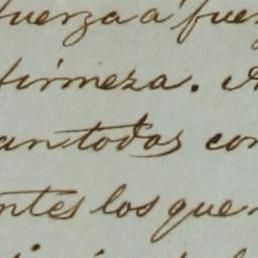 fuerza a fuer
firmeza. A
an todas con
ntes los que